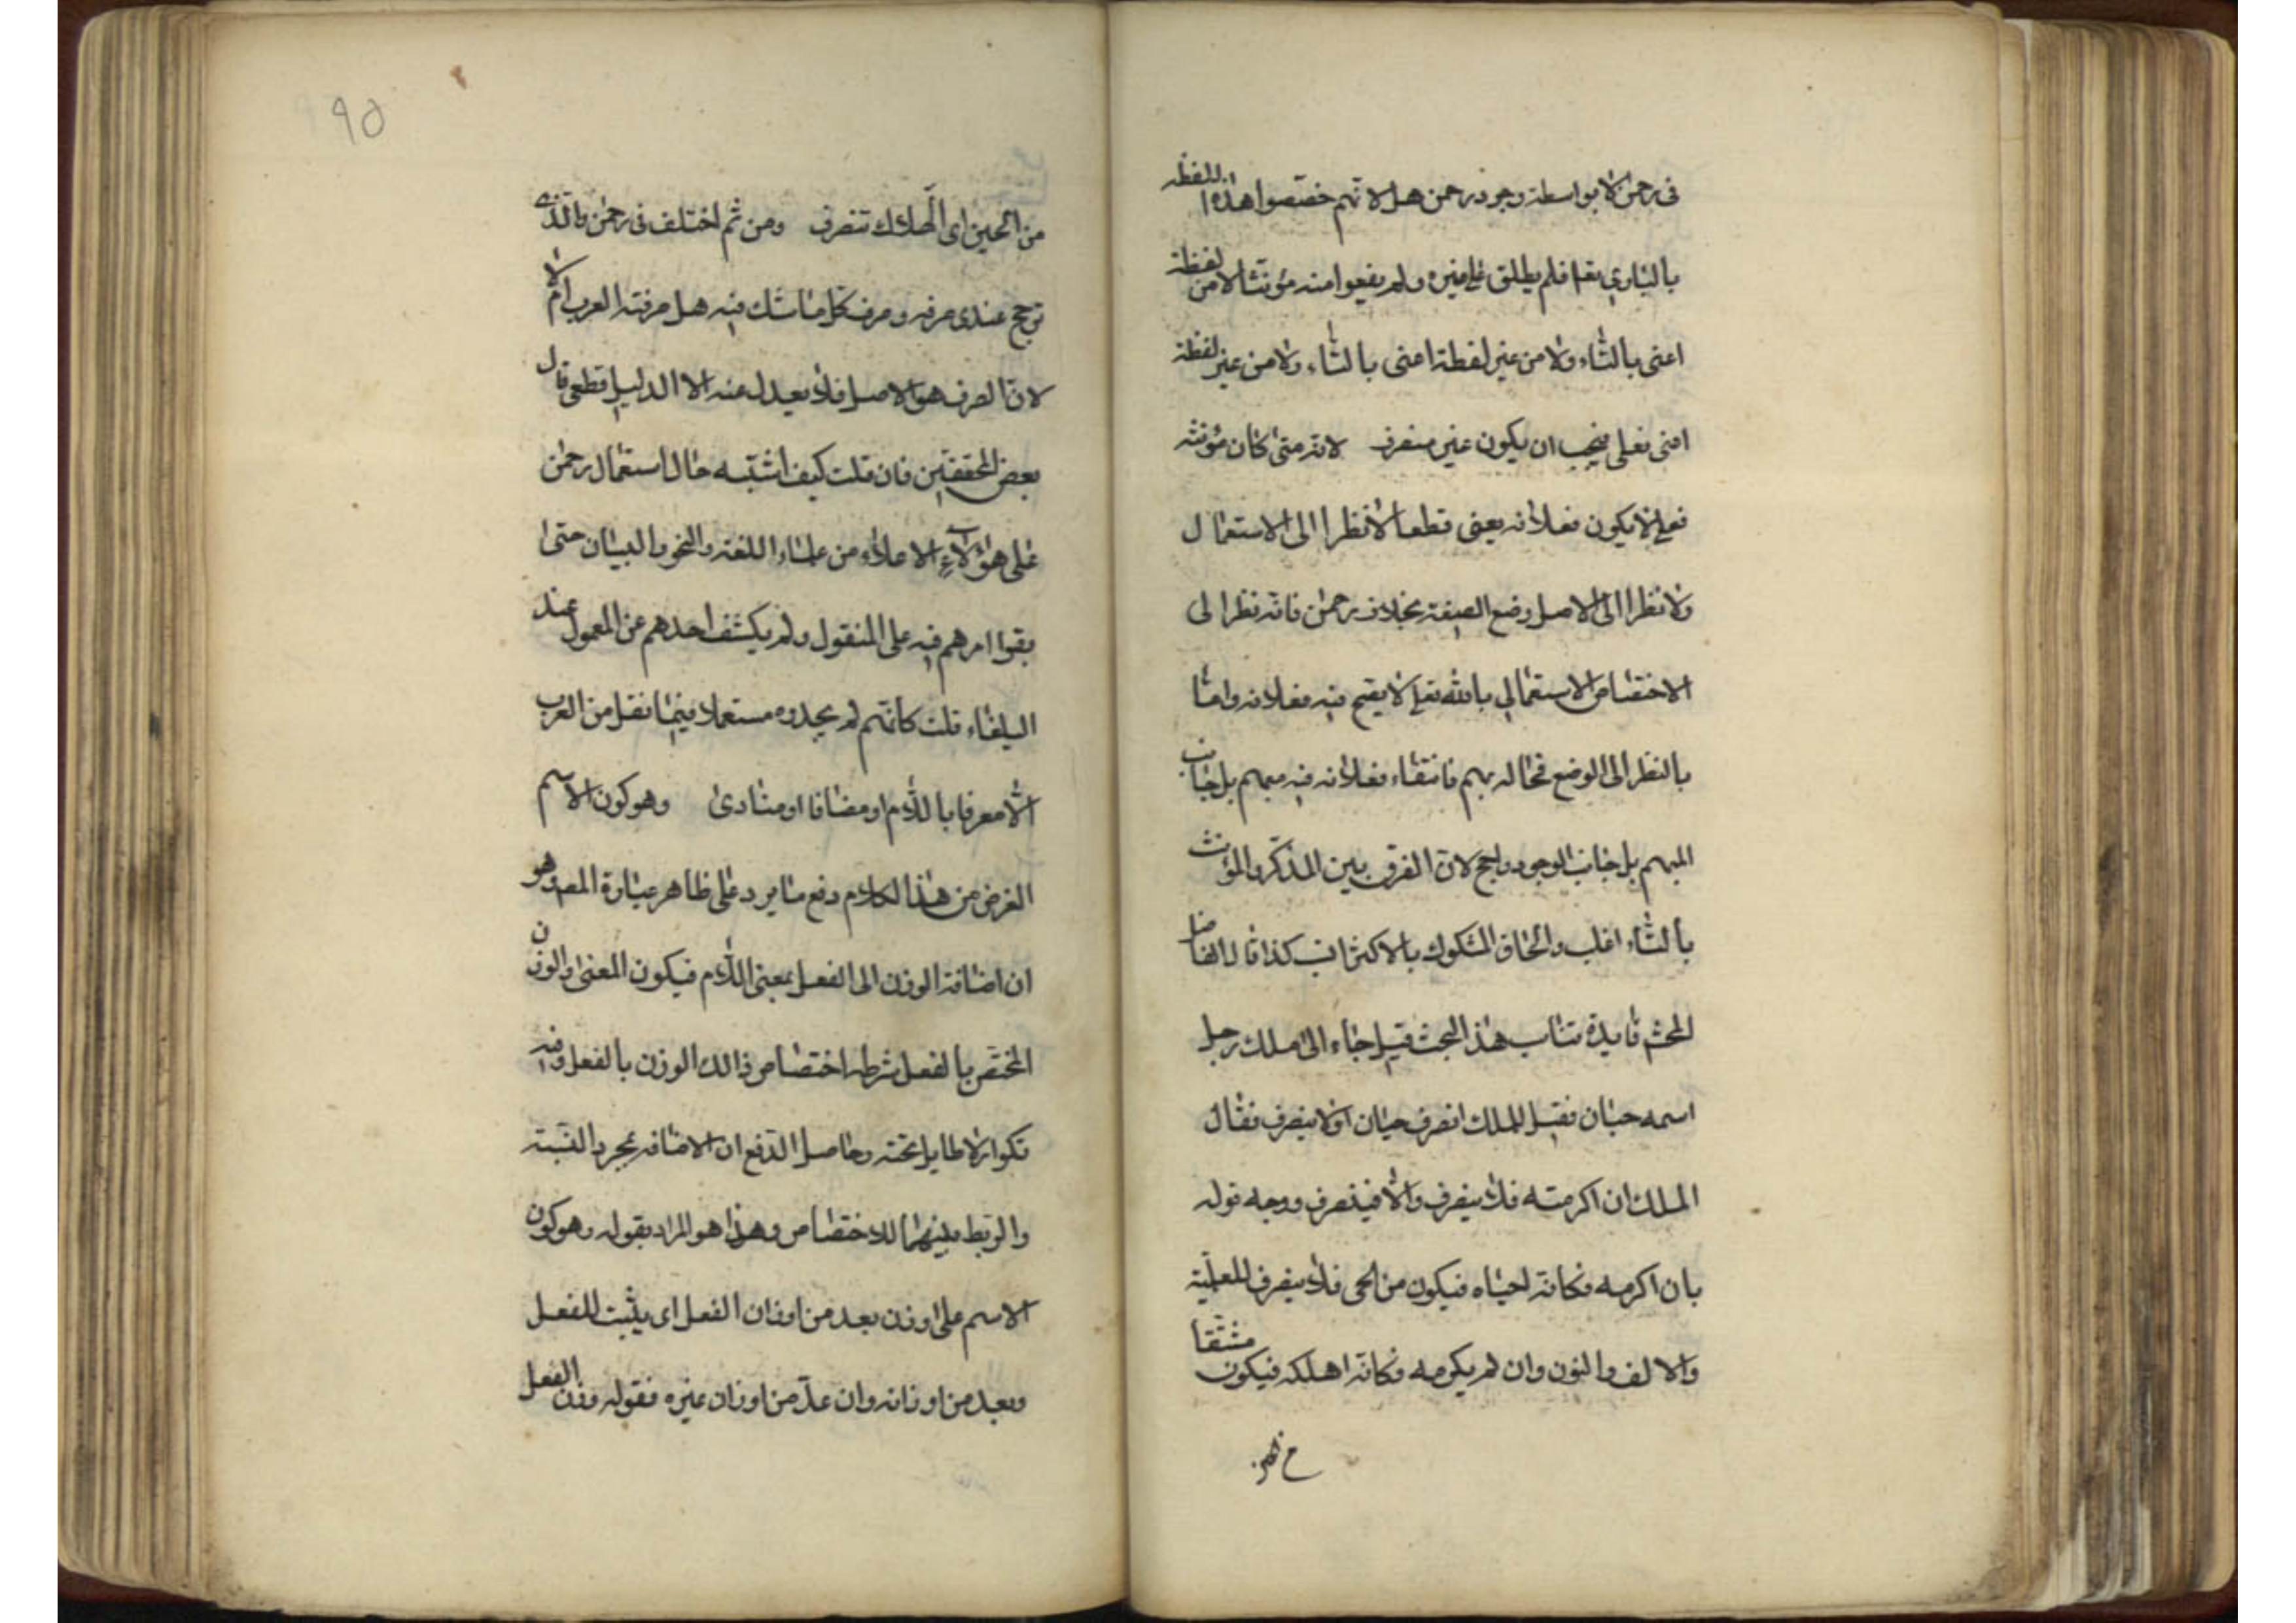 فى رحمن لا بواسطة وجود رحمن هل لانهم خصصوا هذه اللفظه
بالبارى تعا فلم يطلق على غيره ولم يضعوا منه مؤنثا لا من لفظة
اعنى بالتاء ولا من غير لفظة اعنى بالتاء ولا من غير لفظة
اعنى فعلى فيجب ان يكون غير منصرف لانه متى كان مؤنثه
فعلى لا يكون فعلانه يعنى قطعا لا نظرا الى الاستعمال
ولا نظرا الى الاصل وضع الصيغة بخلاف رحمن فانه نظرا لى
الاختصاص الاستعمالي بالله تعلى لا يصح فيه فعلانه واما
بالنظر الى الوضع فحاله بهم فانتفاء فعلانه فيه مبهم بل جانب
المبهم بل جانب الوجود راجح لان الفرق بين المذكر والمؤنث
بالتاء اغلب والحاق المشكوك بالاكثر انسب كذا قال الفاضل
المحشى فايدة تناسب هذا البحث قيل جاء الى ملك رجل
اسمه حيان فقيل للملك انصرف حيان او لا ينصرف فقال
الملك ان اكرمته فلا ينصرف والا فينصرف ووجه قوله
بان اكرمه فكانه احياه فيكون من الحى فلا ينصرف للعلمية
والالف والنون وان لم يكرمه فكانه اهلكه فيكون مشتقا
٩٥
من الحين اى الهلاك تنصرف ومن ثم اختلف فى رحمن والذى
ترجح عندى صرفه وصرف كل ما شك فيه هل صرفته العرب ام لا
لان الصرف هو الاصل فلا يعدل عنه الا الدليل قطعى قال
بعض المحققين فان قلت كيف اشتبه حال استعمال رحمن
على هؤلاء الاعلاء من علماء اللغة والنحو والبيان حتى
بقوا امرهم فيه على المنقول ولم يكشف احدهم عن المعمول عند
البلغاء قلت كانهم لم يجدوه مستعملا فيما نقل من العرب
الا معرفا باللام او مضافا او منادى وهو كون الاسم
الغرض من هذا الكلام دفع ما يرد على ظاهر عبارة المص وهو
ان اضافة الوزن الى الفعل بمعنى اللام فيكون المعنى والوزن
المختص بالفعل شرطه اختصاص ذالك الوزن بالفعل وفيه
تكوار لا طايل تحته وحاصل الدفع ان الاضافه بمجرد النسبة
والربط بينهما للاختصاص وهذا هو المراد بقوله وهو كون
الاسم على وزن بعد من اوزان الفعل اى يثبت للفعل
وبعد من اوزانه وان عد من اوزان غيره فقوله وزن الفعل